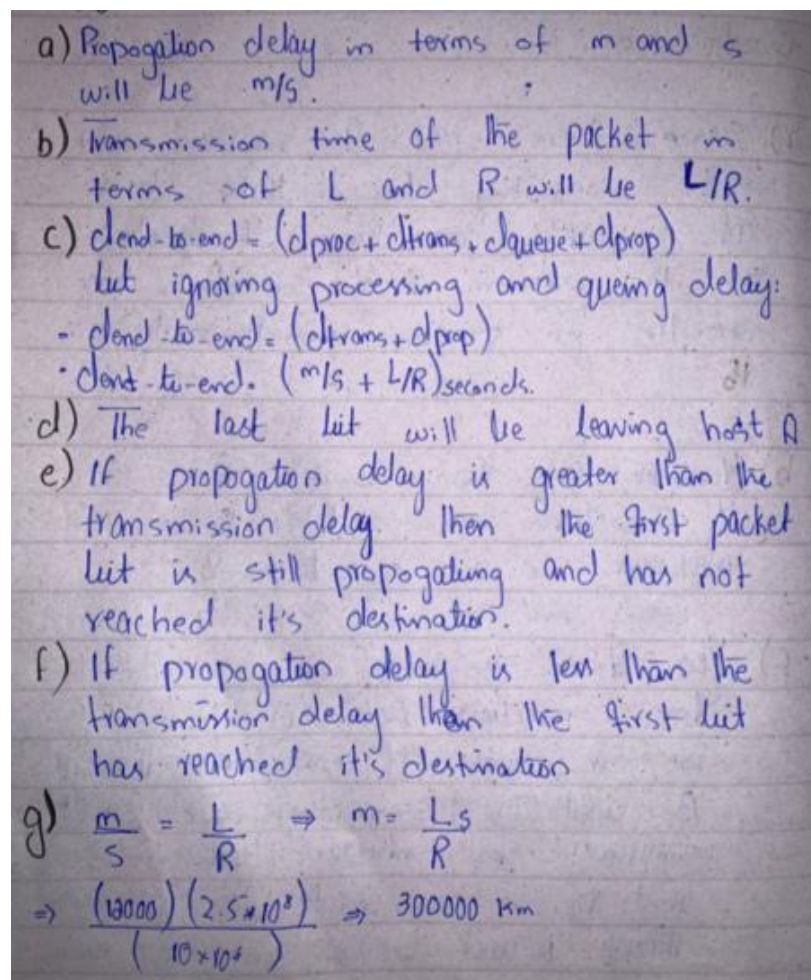 a) Propogation delay in terms of m and s
will be m/s.
b) Transmission time of the packet in
terms of L and R will be L/R.
c) dend-to-end = (dproc + dtrans + dqueue + dprop)
but ignoring processing and queing delay:
- dend-to-end = (dtrans + dprop)
• dend-to-end = (m/s + L/R) seconds.
d) The last bit will be leaving host A
e) If propogation delay is greater than the
transmission delay then the first packet
bit is still propogating and has not
reached it's destination.
f) If propagation delay is less than the
transmission delay then the first bit
has reached it's destination
g) m/s = L/R ⇒ m = Ls/R
⇒ (12000)(2.5*10⁸)/(10×10⁶) ⇒ 300000 km